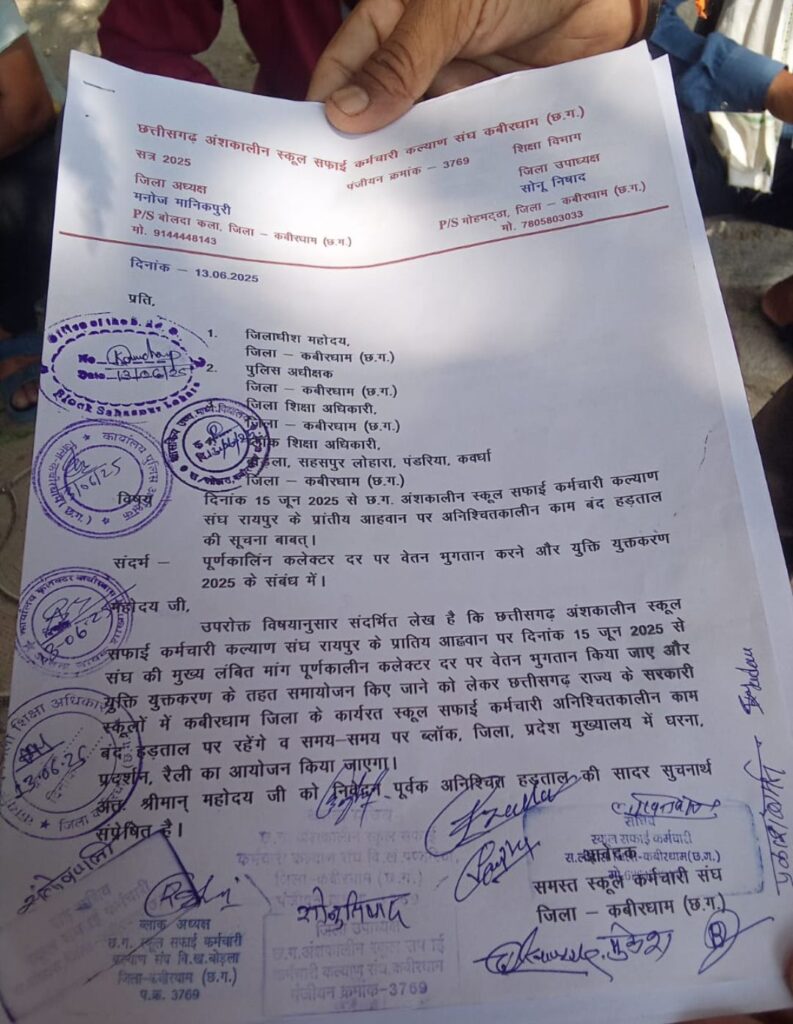 छत्तीसगढ़ अंशकालीन स्कूल सफाई कर्मचारी कल्याण संघ कबीरधाम (छ.ग.)
सत्र 2025
पंजीयन क्रमांक – 3769
शिक्षा विभाग
जिला अध्यक्ष
मनोज मानिकपुरी
P/S बोलदा कला, जिला – कबीरधाम (छ.ग.)
मो. 9144448143
जिला उपाध्यक्ष
सोनू निषाद
P/S मोहमट्ठा, जिला – कबीरधाम (छ.ग.)
मो. 7805803033
दिनांक – 13.06.2025
प्रति,
1. जिलाधीश महोदय,
जिला – कबीरधाम (छ.ग.)
2. पुलिस अधीक्षक
जिला – कबीरधाम (छ.ग.)
जिला शिक्षा अधिकारी,
जिला – कबीरधाम (छ.ग.)
ब्लॉक शिक्षा अधिकारी,
बोड़ला, सहसपुर लोहारा, पंडरिया, कवर्धा
जिला – कबीरधाम (छ.ग.)
विषय दिनांक 15 जून 2025 से छ.ग. अंशकालीन स्कूल सफाई कर्मचारी कल्याण
संघ रायपुर के प्रांतीय आहवान पर अनिश्चितकालीन काम बंद हड़ताल
की सूचना बाबत्।
संदर्भ – पूर्णकालिन कलेक्टर दर पर वेतन भुगतान करने और युक्ति युक्तकरण
2025 के संबंध में।
महोदय जी,
उपरोक्त विषयानुसार संदर्भित लेख है कि छत्तीसगढ़ अंशकालीन स्कूल
सफाई कर्मचारी कल्याण संघ रायपुर के प्रातिय आहवान पर दिनांक 15 जून 2025 से
संघ की मुख्य लंबित मांग पूर्णकालीन कलेक्टर दर पर वेतन भुगतान किया जाए और
युक्ति युक्तकरण के तहत समायोजन किए जाने को लेकर छत्तीसगढ़ राज्य के सरकारी
स्कूलों में कबीरधाम जिला के कार्यरत स्कूल सफाई कर्मचारी अनिश्चितकालीन काम
बंद हड़ताल पर रहेंगे व समय–समय पर ब्लॉक, जिला, प्रदेश मुख्यालय में धरना,
प्रदर्शन, रैली का आयोजन किया जाएगा।
अतः श्रीमान् महोदय जी को निवेदन पूर्वक अनिश्चित हड़ताल की सादर सुचनार्थ
संप्रेषित है।
आवेदक
समस्त स्कूल कर्मचारी संघ
जिला – कबीरधाम (छ.ग.)
Office of the B.
No.
Date 13/06/25
Block Sahaspur Lohara
कार्यालय पुलिस अधीक्षक
जिला शिक्षा अधिकारी
13-06-25
सचिव
स्कूल सफाई कर्मचारी
ब्लाक अध्यक्ष
छ.ग. स्कूल सफाई कर्मचारी
कल्याण संघ वि.ख.बोड़ला
जिला-कबीरधाम (छ.ग.)
प.क्र. 3769
सोनु निषाद
जिला उपाध्यक्ष
छ.ग.अंशकालीन स्कूल सफाई
कर्मचारी कल्याण संघ,कबीरधाम
पंजीयन क्रमांक-3769
मुकेश